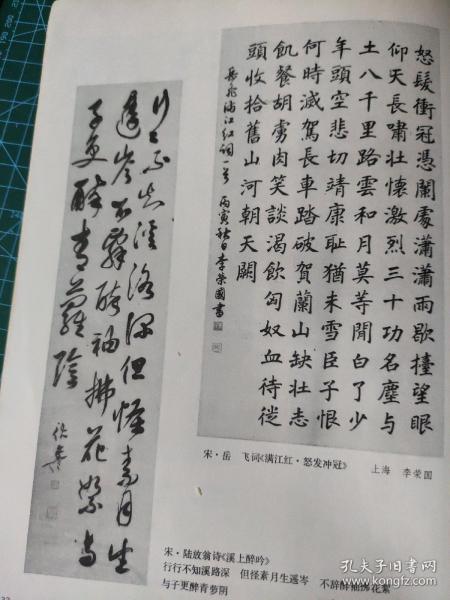 怒髮衝冠憑闌處瀟瀟雨歇擡望眼
仰天長嘯壯懷激烈三十功名塵與
土八千里路雲和月莫等閒白了少
年頭空悲切靖康恥猶未雪臣子恨
何時滅駕長車踏破賀蘭山缺壯志
飢餐胡虜肉笑談渴飲匈奴血待從
頭收拾舊山河朝天闕
岳飛滿江紅詞一首 丙寅秋日李榮國書
宋·岳 飞词《满江红·怒发冲冠》 上海 李荣国
行〻不知溪路深但怪素月生
遙岑不辭醉袖拂花絮与
子更醉青蘿陰
宋·陆放翁诗《溪上醉吟》
行行不知溪路深 但怪素月生遥岑 不辞醉袖拂花絮
与子更醉青萝阴
孔夫子旧书网